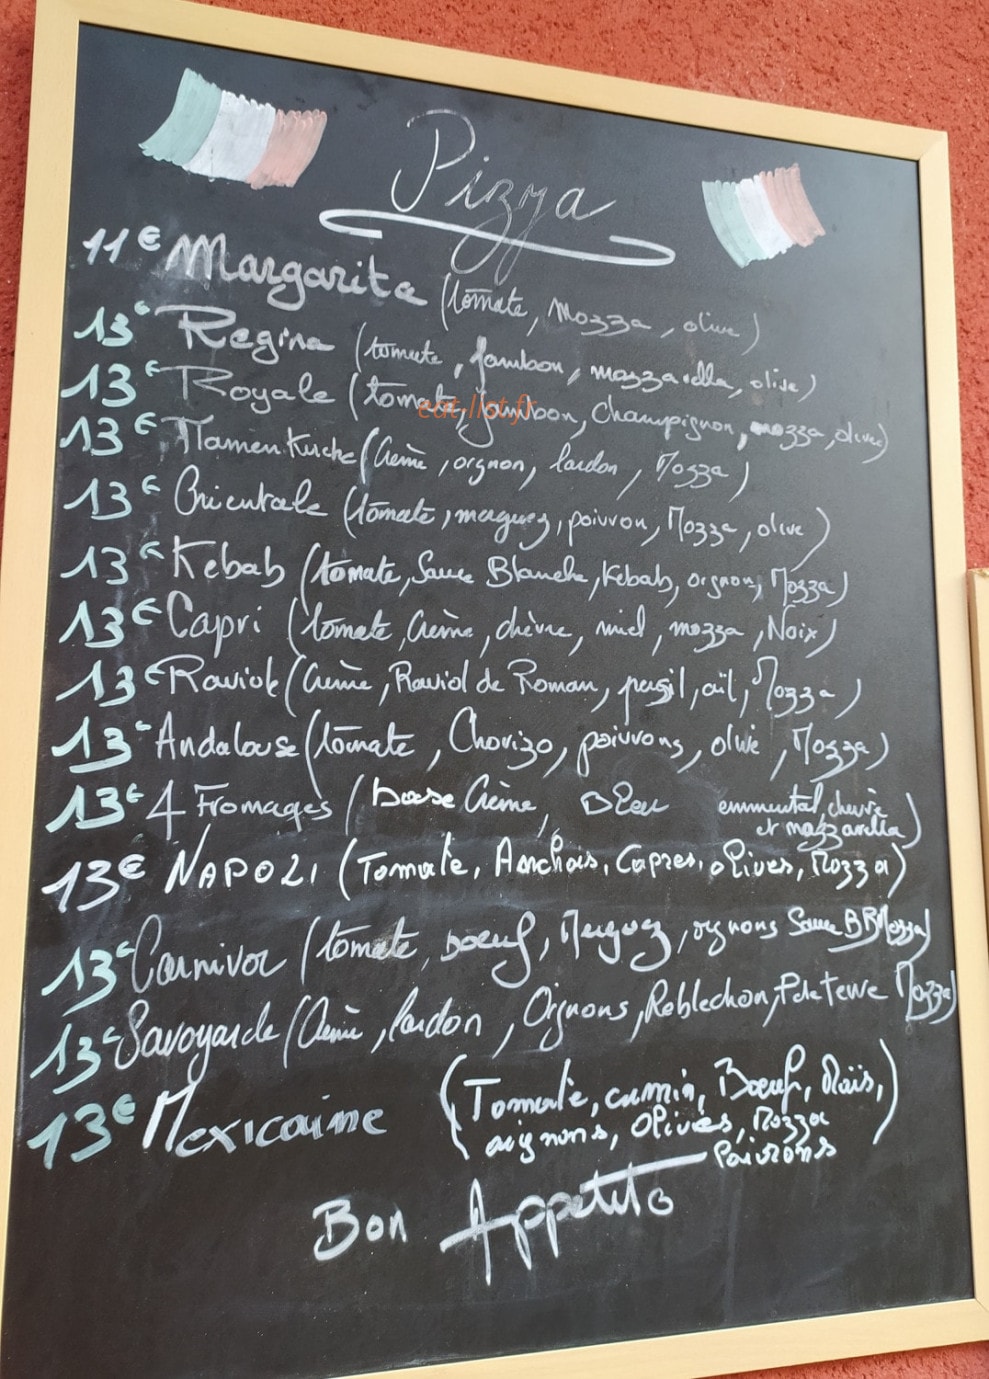 Pizza
11€ Margarita (tomate, mozza, olive)
13€ Regina (tomate, jambon, mozzarella, olive)
13€ Royale (tomate, jambon, champignon, mozza, olive)
eat-list.fr
13€ Flamenkuche (Crème, oignon, lardon, Mozza)
13€ Orientale (tomate, merguez, poivron, Mozza, olive)
13€ Kebab (tomate, Sauce Blanche, Kebab, oignon, Mozza)
13€ Capri (tomate, Crème, chèvre, miel, mozza, Noix)
13€ Raviole (Crème, Raviol de Roman, persil, ail, Mozza)
13€ Andalouse (tomate, Chorizo, poivrons, olive, Mozza)
13€ 4 Fromages (base Crème, Bleu emmental, chèvre
et mozzarella)
13€ NAPOLI (Tomate, Anchois, Capres, olives, Mozza)
13€ Carnivor (tomate, boeuf, Merguez, oignons Sauce BR Mozza)
13€ Savoyarde (Crème, lardon, Oignons, Roblechon, P de terre Mozza)
13€ Mexicaine (Tomate, cumin, Boeuf, Maïs,
oignons, Olives, Mozza
Poivrons)
Bon Appetito